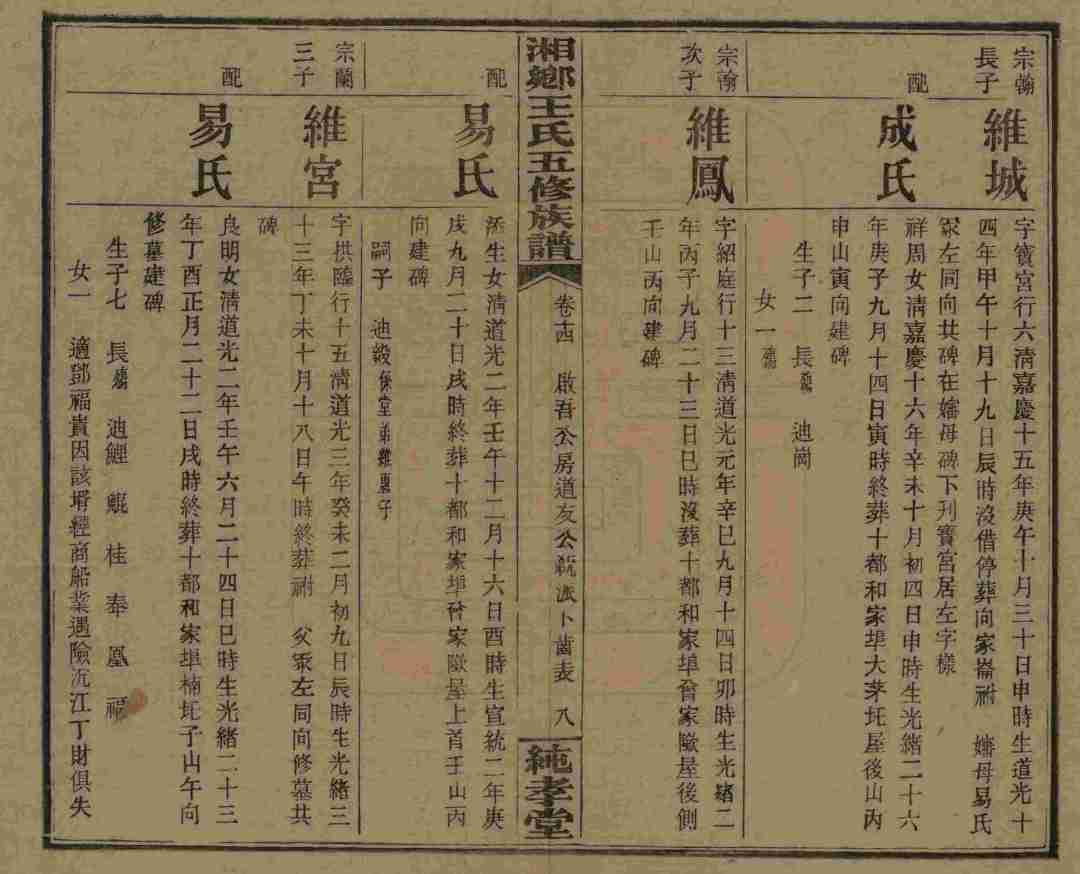 宗翰
長子
維城
字寶宮行六清嘉慶十五年庚午十月三十日申時生道光十
四年甲午十月十九日辰時沒借停葬向家崙祔 嬸母易氏
冢左同向共碑在嬸母碑下刋寶宮居左字樣
配
成氏
祥周女清嘉慶十六年辛未十月初四日申時生光緒二十六
年庚子九月十四日寅時終葬十都和家埠大茅坵屋後山丙
申山寅向建碑
生子二 長殤 迪崗
女一殤
宗翰
次子
維鳳
字紹庭行十三清道光元年辛巳九月十四日卯時生光緒二
年丙子九月二十三日巳時沒葬十都和家埠曾家歐屋後側
壬山丙向建碑
湘鄉王氏五修族譜
卷十四 啟吾公房道友公 派卜 齒表 八
純孝堂
配
易氏
生女清道光二年壬午十二月十六日酉時生宣統二年庚
戌九月二十日戌時終葬十都和家埠曾家歐屋上首壬山丙
向建碑
嗣子 迪毅係堂弟維 子
宗蘭
三子
維宮
字拱臨行十五清道光三年癸未二月初九日辰時生光緒三
十三年丁未十月十八日午時終葬祔 父冢左同向修墓共
碑
配
易氏
良明女清道光二年壬午六月二十四日巳時生光緒二十三
年丁酉正月二十二日戌時終葬十都和家埠楠坵子山午向
修墓建碑
生子七 長殤 迪鯉 鯤 桂 奉 凰 福
女一 適鄧福貴因該壻經商船業遇險沉江丁財俱失